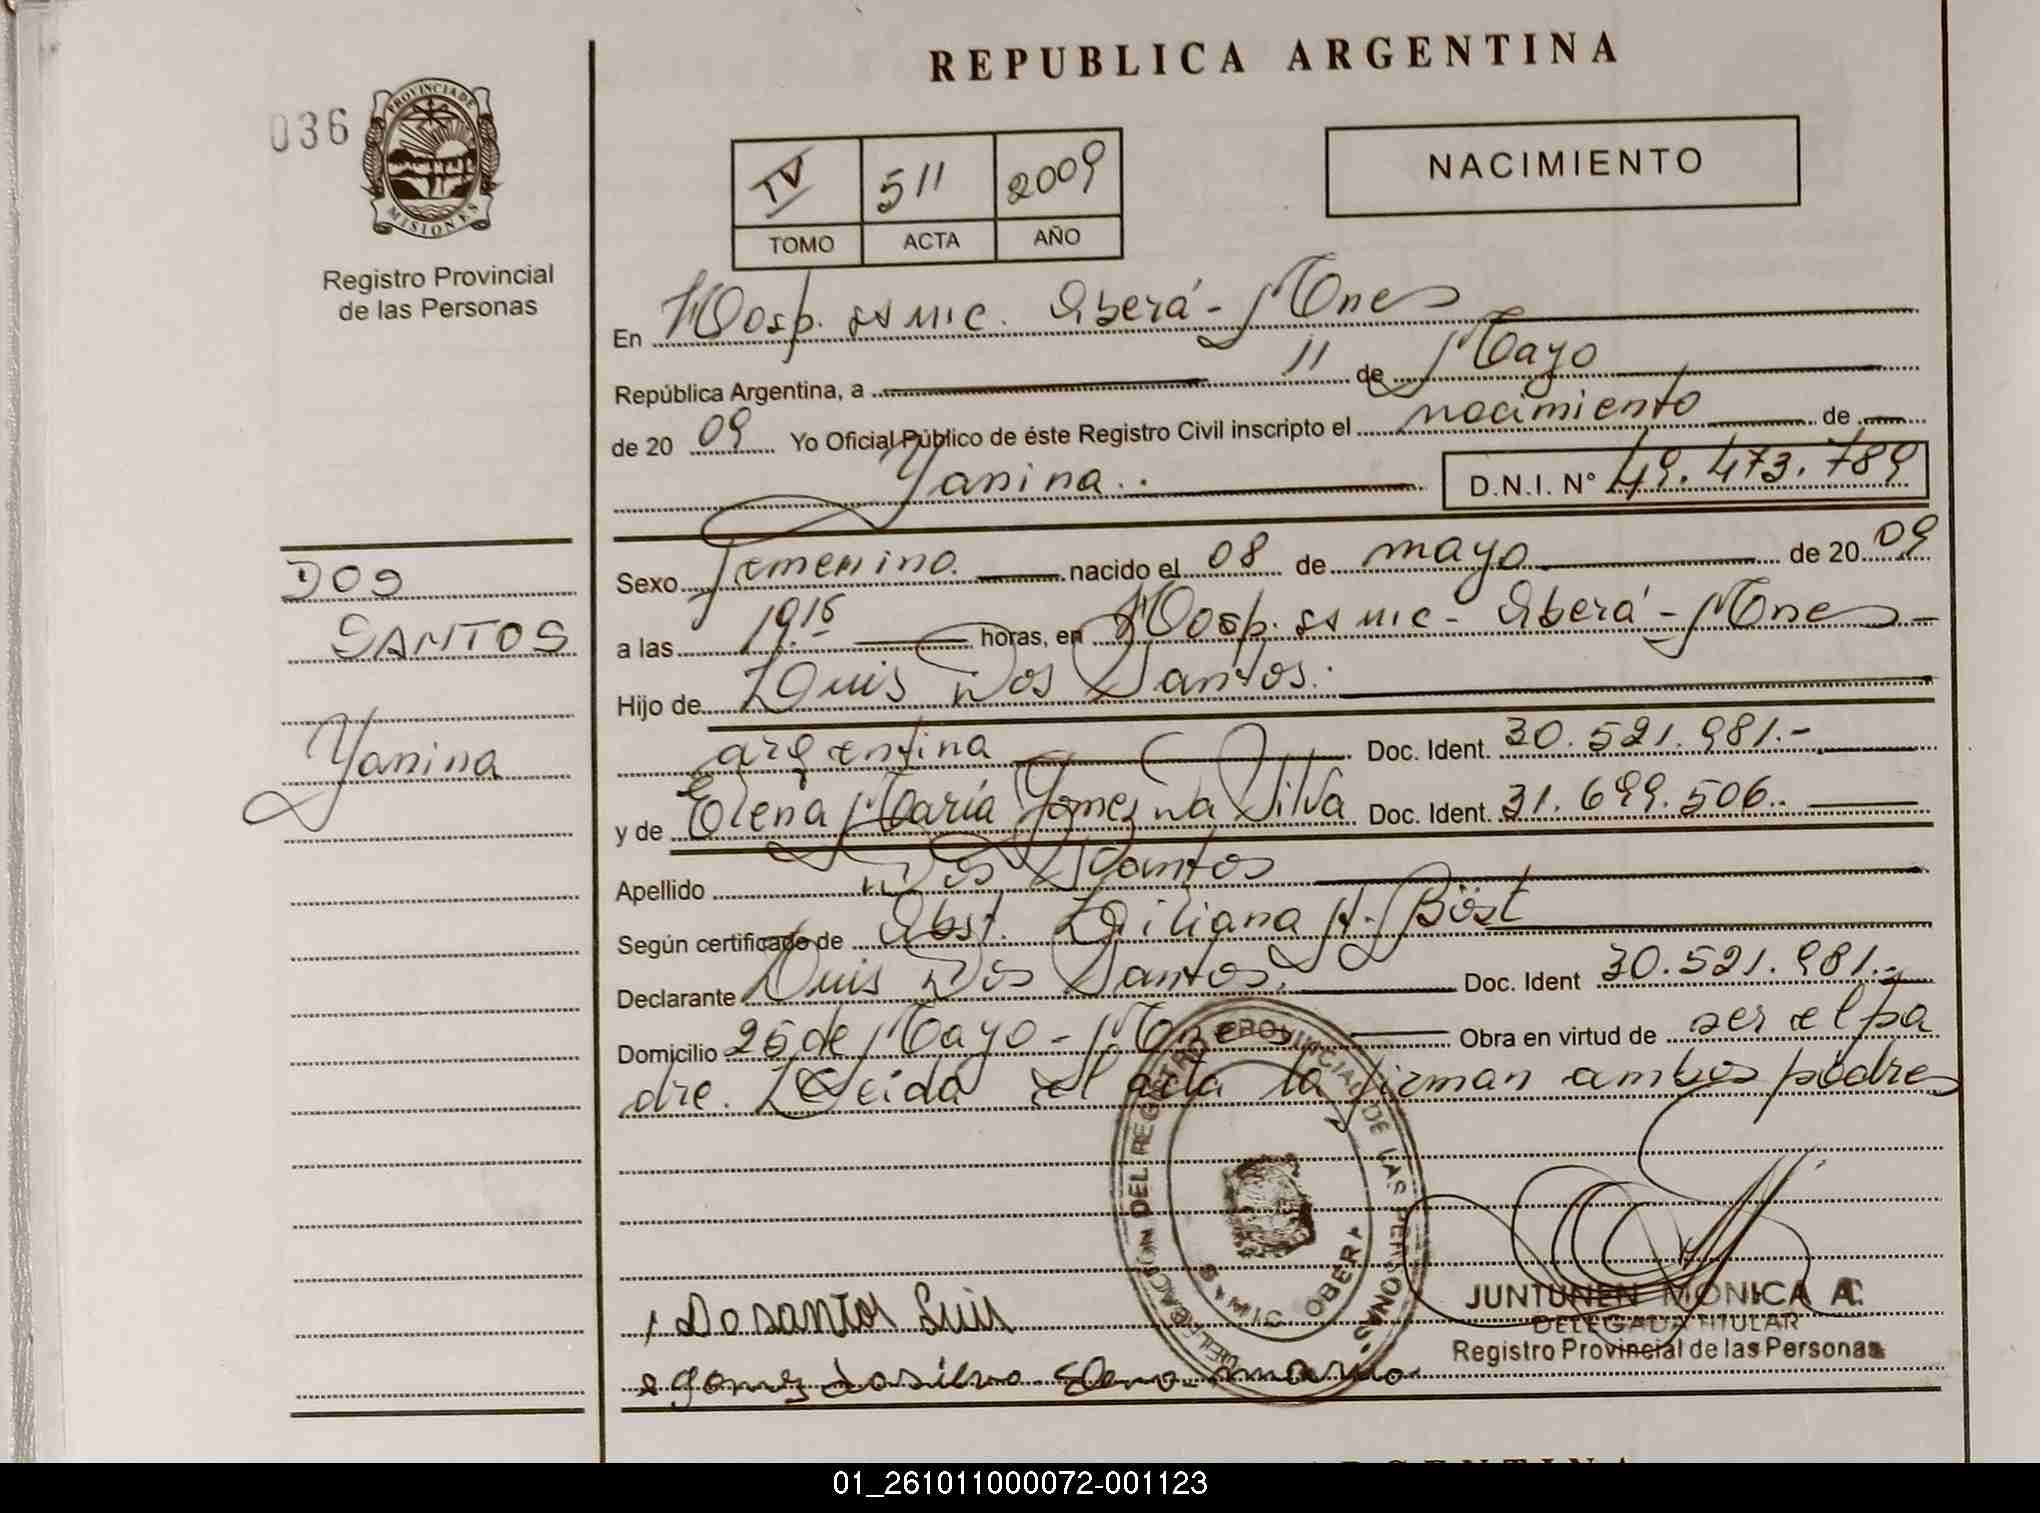 REPUBLICA ARGENTINA
036
PROVINCIA DE
MISIONES
Registro Provincial
de las Personas
IV 511 2009
TOMO ACTA AÑO
NACIMIENTO
En Hosp. SAMIC. Oberá - Mnes
República Argentina, a 11 de Mayo
de 20 09 Yo Oficial Público de éste Registro Civil inscripto el nacimiento de
Yanina D.N.I. N° 49.473.789
DOS
SANTOS
Yanina
Sexo Femenino. nacido el 08 de mayo de 20 09
a las 19,15 horas, en Hosp. SAMIC - Oberá - Mnes
Hijo de Luis Dos Santos.
argentina Doc. Ident. 30.521.981.-
y de Elena María Gomez Da Silva Doc. Ident. 31.699.506.
Apellido Dos Santos
Según certificado de Obst. Liliana H. Böst
Declarante Luis Dos Santos. Doc. Ident 30.521.981.-
Domicilio 25 de Mayo - Mnes Obra en virtud de ser el pa
dre. Leída el acta la firman ambos padres
DELEGACION DEL REGISTRO PROVINCIAL DE LAS PERSONAS
SAMIC OBERA
Dosantos Luis
gomez dasilva Elena maria
JUNTUNEN MONICA A.
DELEGADA TITULAR
Registro Provincial de las Personas
01_261011000072-001123